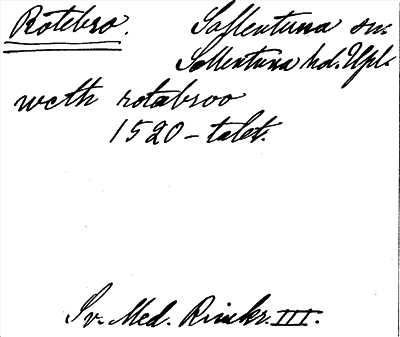 Rotebro. Sollentuna sn.
Sollentuna hd. Upl.
weth rotabroo
1520-talet.
Sv. Med. Rimkr. III.